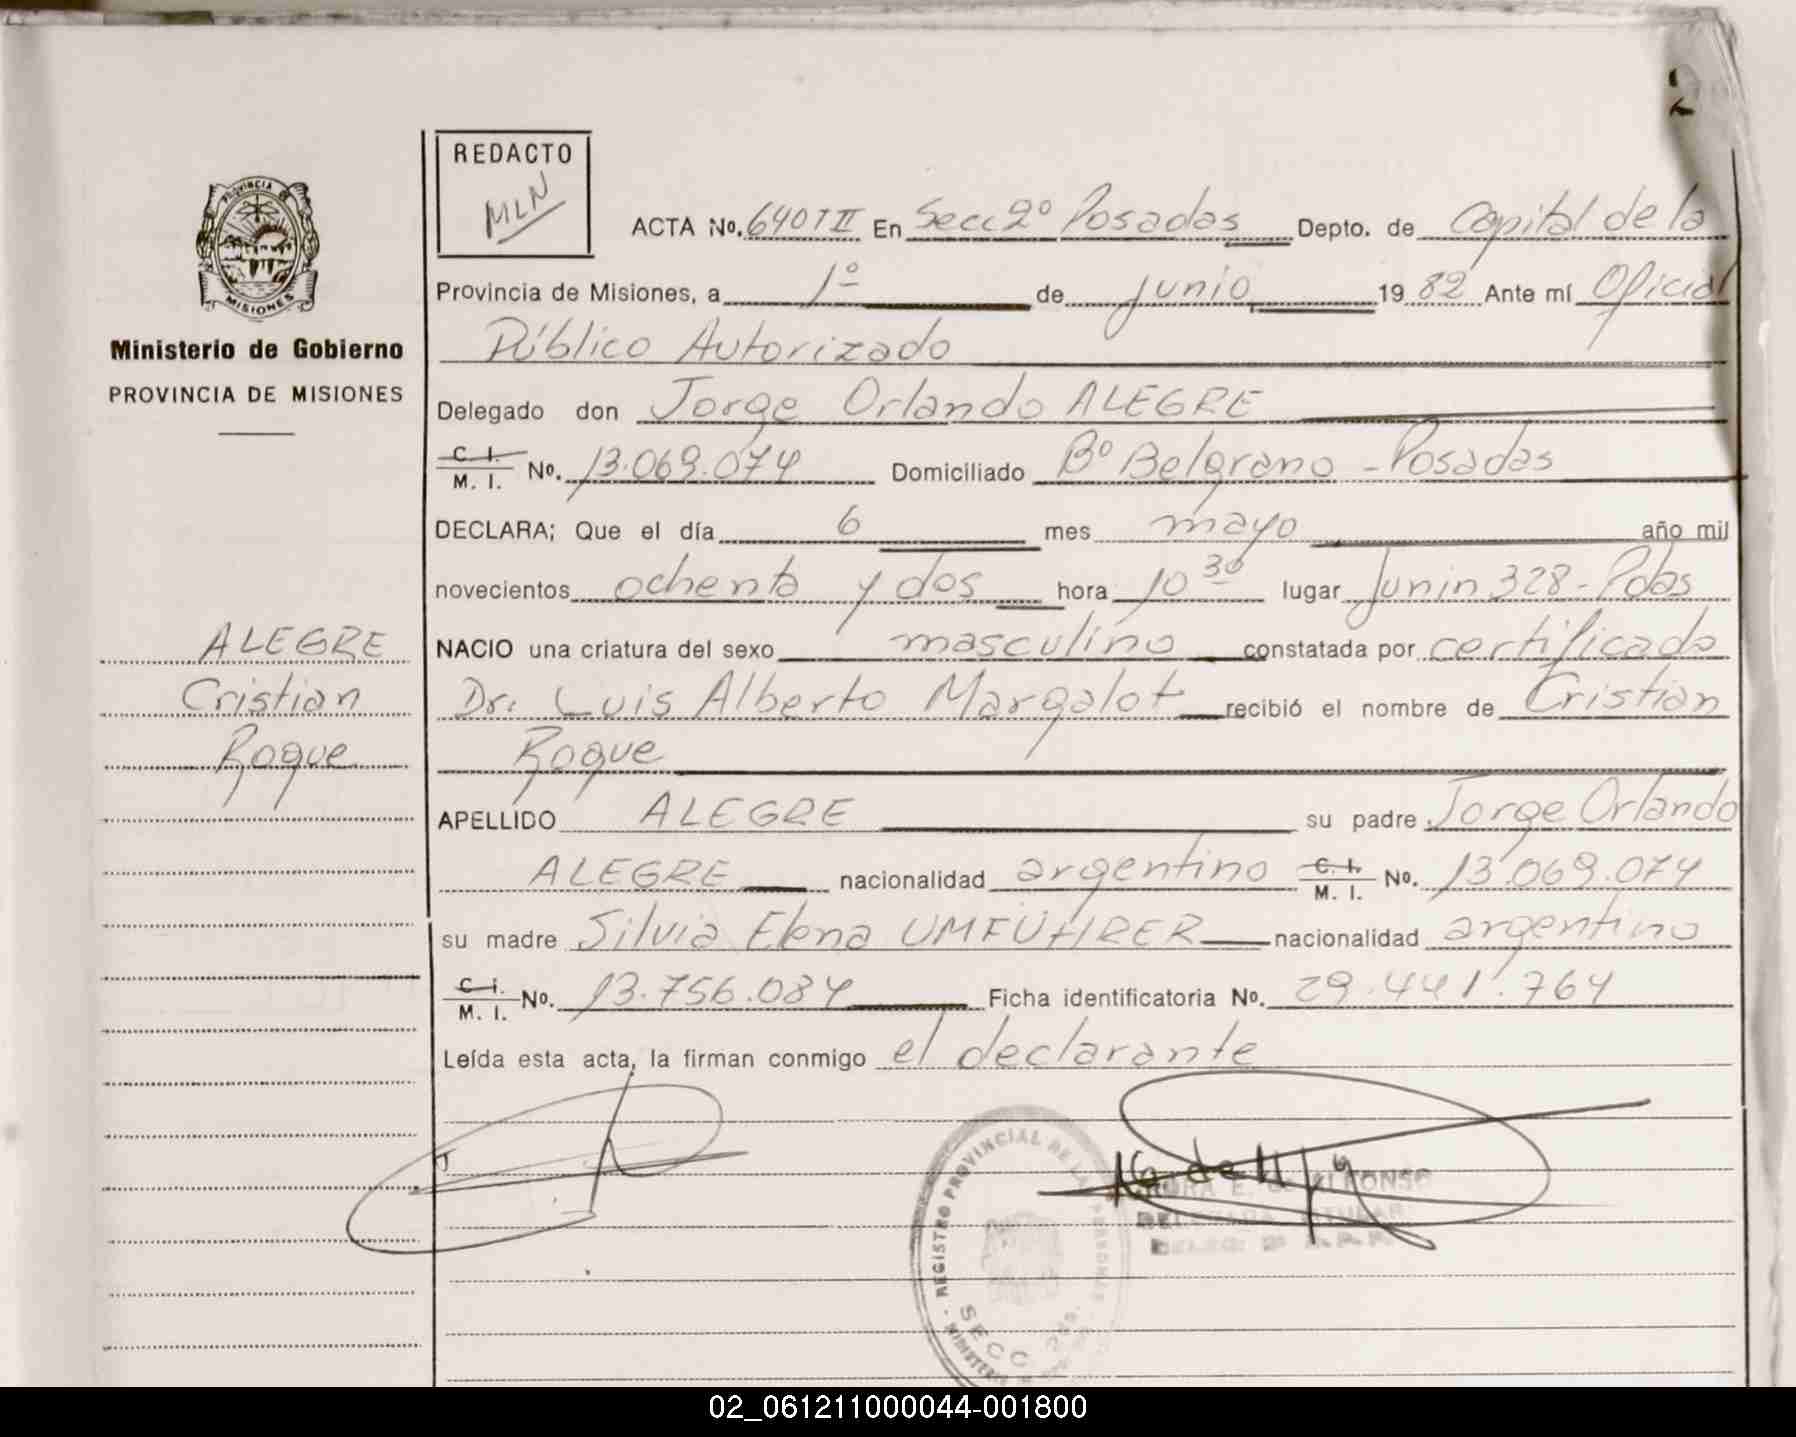 REDACTO
MLN
ACTA No. 640 T II En Secc 2º Posadas Depto. de Capital de la
Provincia de Misiones, a 1º de junio 1982 Ante mí Oficial
Público Autorizado
Delegado don Jorge Orlando ALEGRE
C. I. M. I. No. 13.069.074 Domiciliado Bº Belgrano - Posadas
DECLARA; Que el día 6 mes mayo año mil
novecientos ochenta y dos hora 10 30 lugar Junin 328 - Pdas
NACIO una criatura del sexo masculino constatada por certificado
Dr. Luis Alberto Margalot recibió el nombre de Cristian
Roque
APELLIDO ALEGRE su padre Jorge Orlando
ALEGRE nacionalidad argentino C. I. M. I. No. 13.069.074
su madre Silvia Elena UMFÜHRER nacionalidad argentina
C. I. M. I. No. 13.756.084 Ficha identificatoria No. 29.441.764
Leída esta acta, la firman conmigo el declarante
PROVINCIA DE
MISIONES
Ministerio de Gobierno
PROVINCIA DE MISIONES
ALEGRE
Cristian
Roque
REGISTRO PROVINCIAL DE LAS PERSONAS
SECC
E. G. ALFONSO
02_061211000044-001800